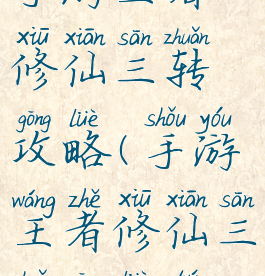 xiū xiān sān zhuǎn
修仙三转
gōng lüè shǒu yóu
攻略(手游
wáng zhě xiū xiān sān
王者修仙三